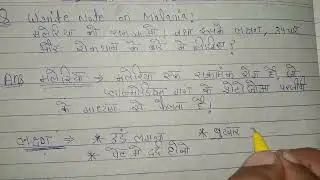 Q Write Note on Malaria?
मलेरिया को समझाओ। तथा इसके लक्षण, उपचार
और रोकथाम के बारे में लिखिए?
Ans मलेरिया ⇒ मलेरिया एक संक्रामक रोग है। जो
प्लाज्मोडियम नाम के प्रोटोजोआ परजीवी
के माध्यम से फैलता है।
लक्षण ⇒ * ठंड लगना * बुखार
* पेट में दर्द होना